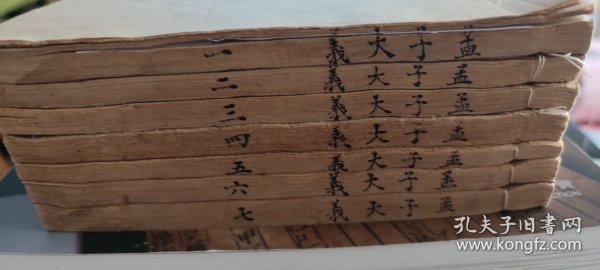 孟子大義 一
孟子大義 二
孟子大義 三
孟子大義 四
孟子大義 五
孟子大義 六
孟子大義 七
孔夫子旧书网
www.kongfz.com